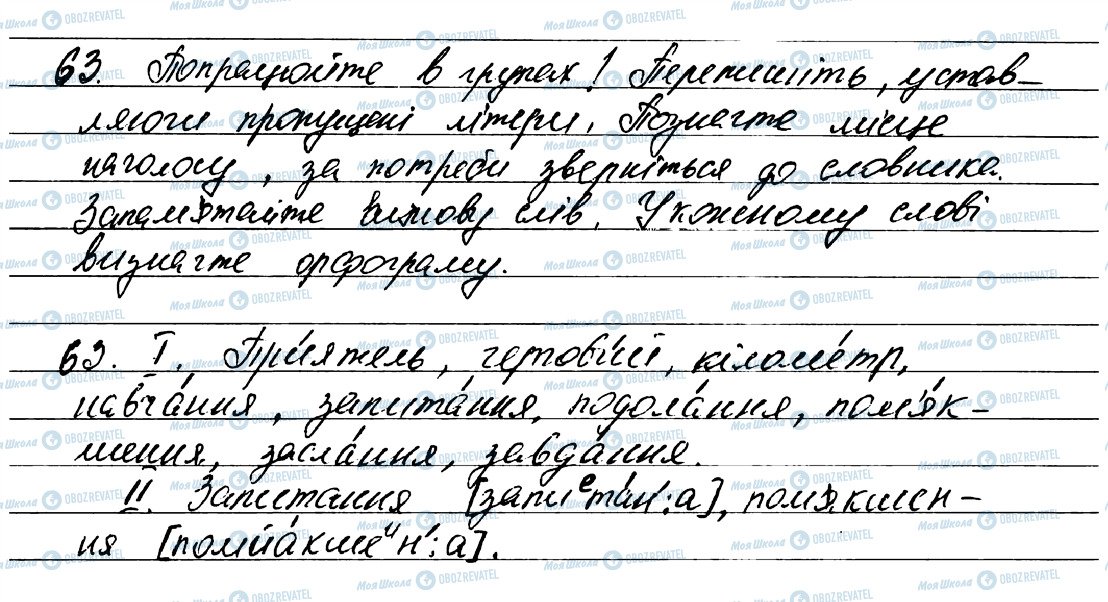 63. Попрацюйте в групах! Перепишіть, устав-
ляючи пропущені літери. Позначте місце
наголосу, за потреби зверніться до словника.
Запам'ятайте вимову слів. У кожному слові
визначте орфограму.
63. І. При́ятель, чертови́й, кіломе́тр,
навча́ння, запита́ння, подола́ння, пом'я́к-
шення, засла́ння, завда́ння.
ІІ. Запитання [запиᵉта́н':а], пом'якшен-
ня [помйа́кшеᵘн':а].